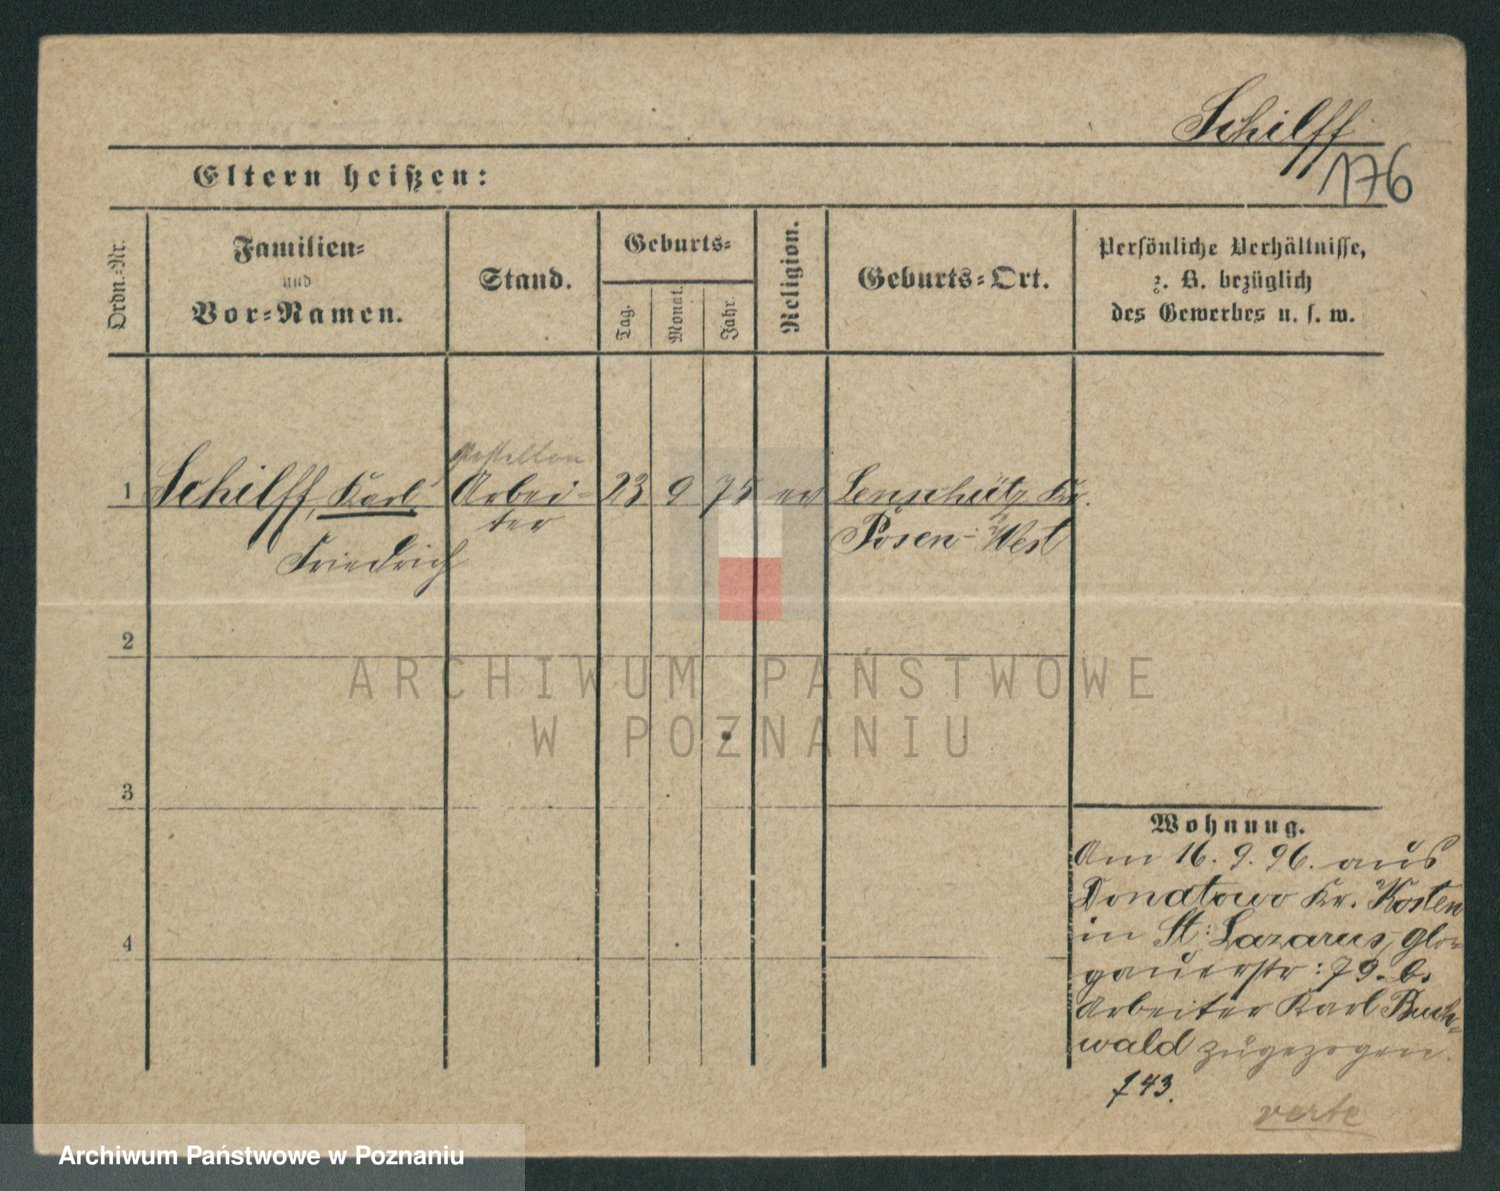 Schilff
176
Eltern heißen:
Ordn.-Nr.
Familien-
und
Vor-Namen.
Stand.
Geburts-
Tag.
Monat.
Jahr.
Religion.
Geburts-Ort.
Persönliche Verhältnisse,
z. B. bezüglich
des Gewerbes u. s. w.
Postillon
1 Schilff, Karl Arbei- 23 9 75 ev Lenschütz Kr.
ter Posen-West
Friedrich
2
3
4
Wohnung.
Am 16. 9. 96. aus
Donatowo Kr. Kosten
in St: Lazarus, Glo-
gauerstr: 79. b.
Arbeiter Karl Buch-
wald zugezogen.
743.
verte
ARCHIWUM PAŃSTWOWE
W POZNANIU
Archiwum Państwowe w Poznaniu